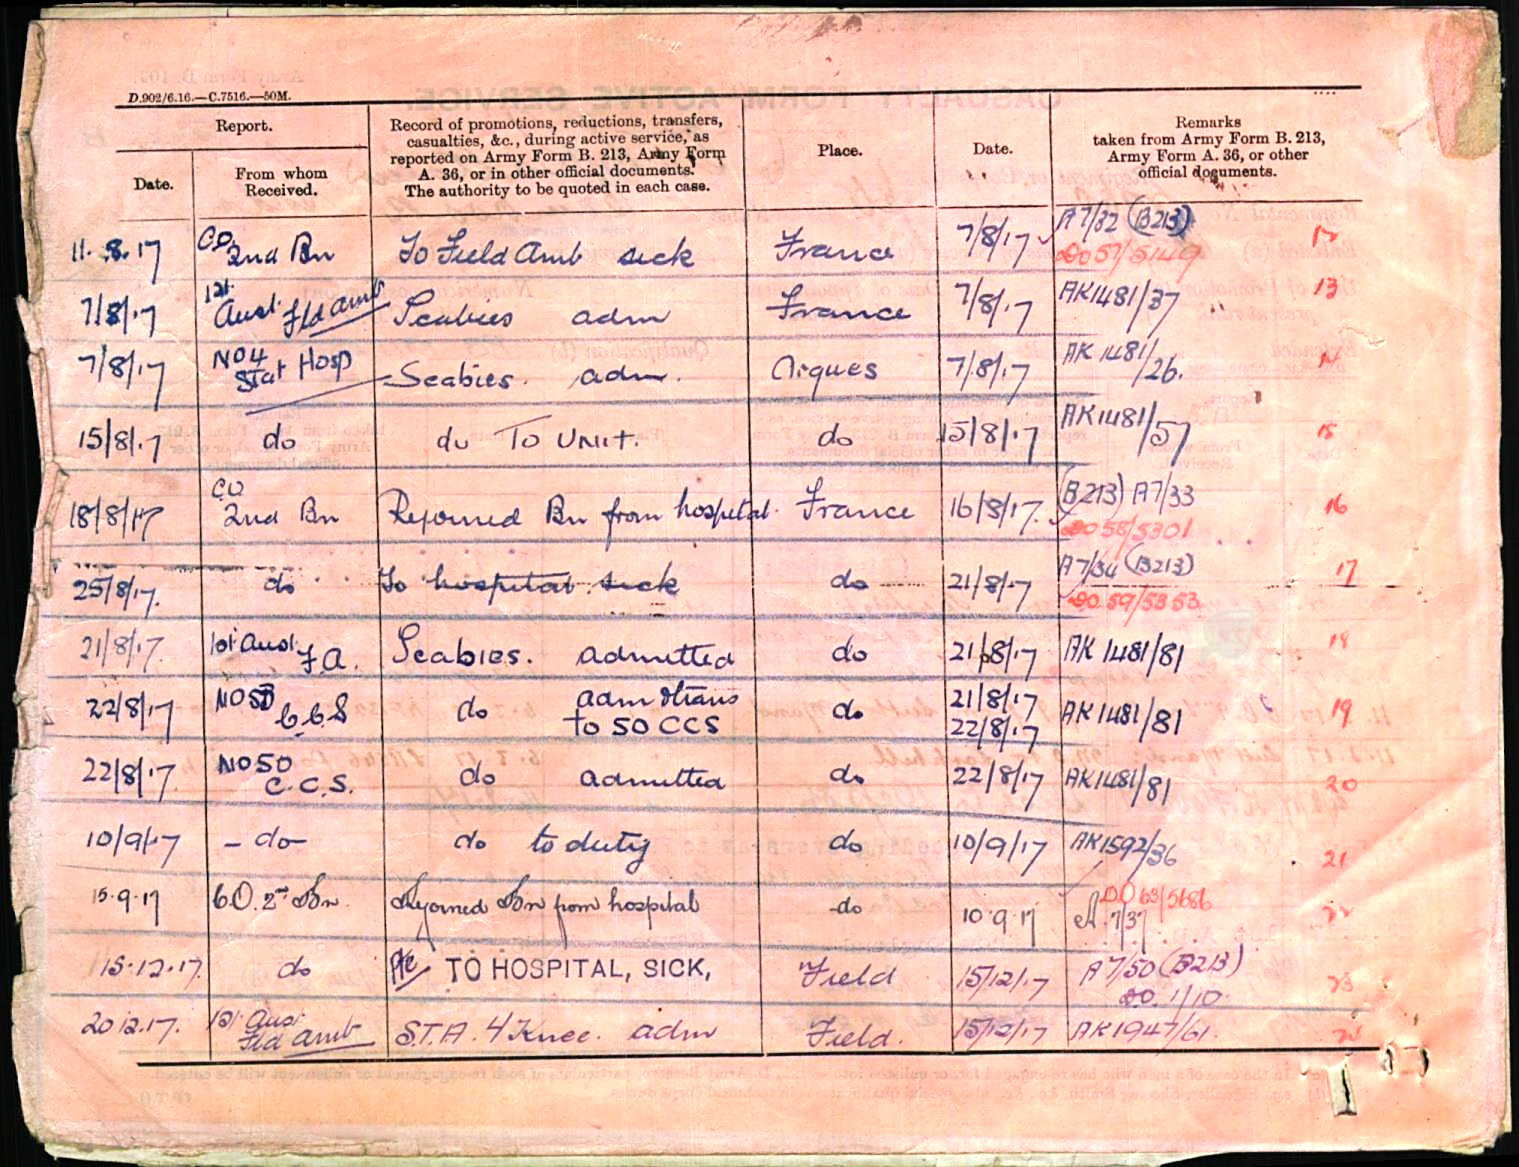 D.902/6.16.—C.7516.—50M.
Report.
Record of promotions, reductions, transfers, casualties, &c., during active service, as reported on Army Form B. 213, Army Form A. 36, or in other official documents. The authority to be quoted in each case.
Place.
Date.
Remarks taken from Army Form B. 213, Army Form A. 36, or other official documents.
Date.
From whom Received.
11.8.17 CO 2nd Bn To Field Amb sick France 7/8/17 A7/32 (B213) DO 57/5149 12
7/8/17 1st Aust Fld Amb Scabies adm France 7/8/17 AK1481/37 13
7/8/17 No 4 Stat Hosp Scabies. adm. Arques 7/8/17 AK 1481/26. 14
15/8/17 do do To Unit. do 15/8/17 AK1481/57 15
18/8/17 CO 2nd Bn Rejoined Bn from hospital. France 16/8/17. (B213) A7/33 DO 58/5301 16
25/8/17. do To hospital sick do 21/8/17 A7/34 (B213) DO 59/5353 17
21/8/17. 1st Aust. F.A. Scabies. admitted do 21/8/17 AK 1481/81 18
22/8/17 No 53 C.C.S do adm & trans to 50 CCS do 21/8/17 22/8/17 AK1481/81 19
22/8/17. No 50 C.C.S. do admitted do 22/8/17 AK1481/81 20
10/9/17 - do - do to duty do 10/9/17 AK1592/36 21
15.9.17 C.O. 2nd Bn. Rejoined Bn from hospital do 10.9.17 DO 63/5686 A.7/37 22
15.12.17. do Pte TO HOSPITAL, SICK, Field 15/12/17 A7/50 (B213) DO. 1/10 23
20.12.17. 1st Aust Fld Amb Knee. adm Field. 15/12/17 AK1947/61.